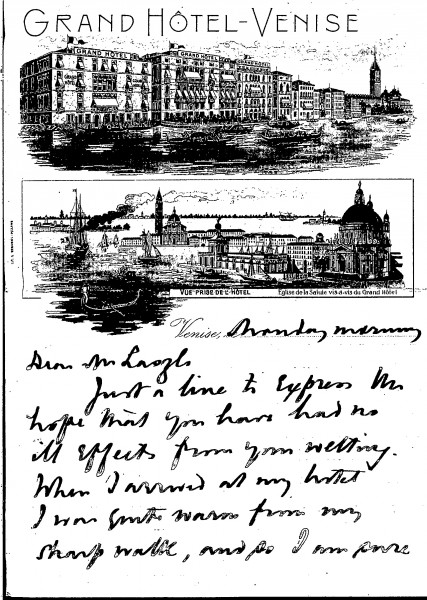 GRAND HÔTEL-VENISE
GRAND HOTEL
GRAND HOTEL
GRAND HOTEL
VUE PRISE DE L'HÔTEL
Église de la Salute vis-à-vis du Grand Hôtel
Venise, Monday morning
Dear Mr Laszlo
Just a line to Express the
hope that you have had no
ill Effects from your wetting.
When I arrived at my hotel
I was quite warm from my
sharp walk, and so I am sure